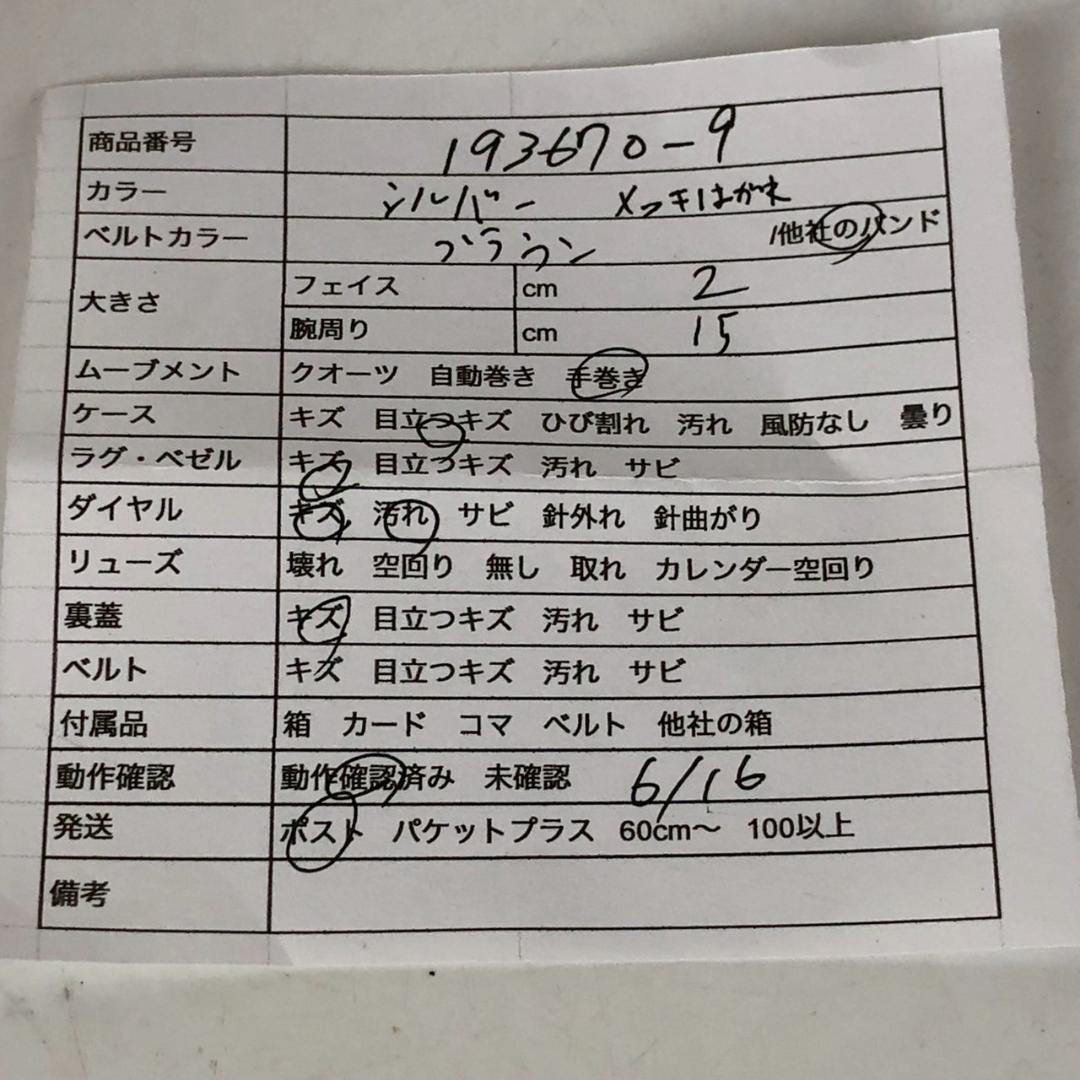 商品番号 193670-9
カラー シルバー メッキはがれ
ベルトカラー ブラウン /他社のバンド
大きさ フェイス cm 2
腕周り cm 15
ムーブメント クオーツ 自動巻き 手巻き
ケース キズ 目立つキズ ひび割れ 汚れ 風防なし 曇り
ラグ・ベゼル キズ 目立つキズ 汚れ サビ
ダイヤル キズ 汚れ サビ 針外れ 針曲がり
リューズ 壊れ 空回り 無し 取れ カレンダー空回り
裏蓋 キズ 目立つキズ 汚れ サビ
ベルト キズ 目立つキズ 汚れ サビ
付属品 箱 カード コマ ベルト 他社の箱
動作確認 動作確認済み 未確認 6/16
発送 ポスト パケットプラス 60cm〜 100以上
備考